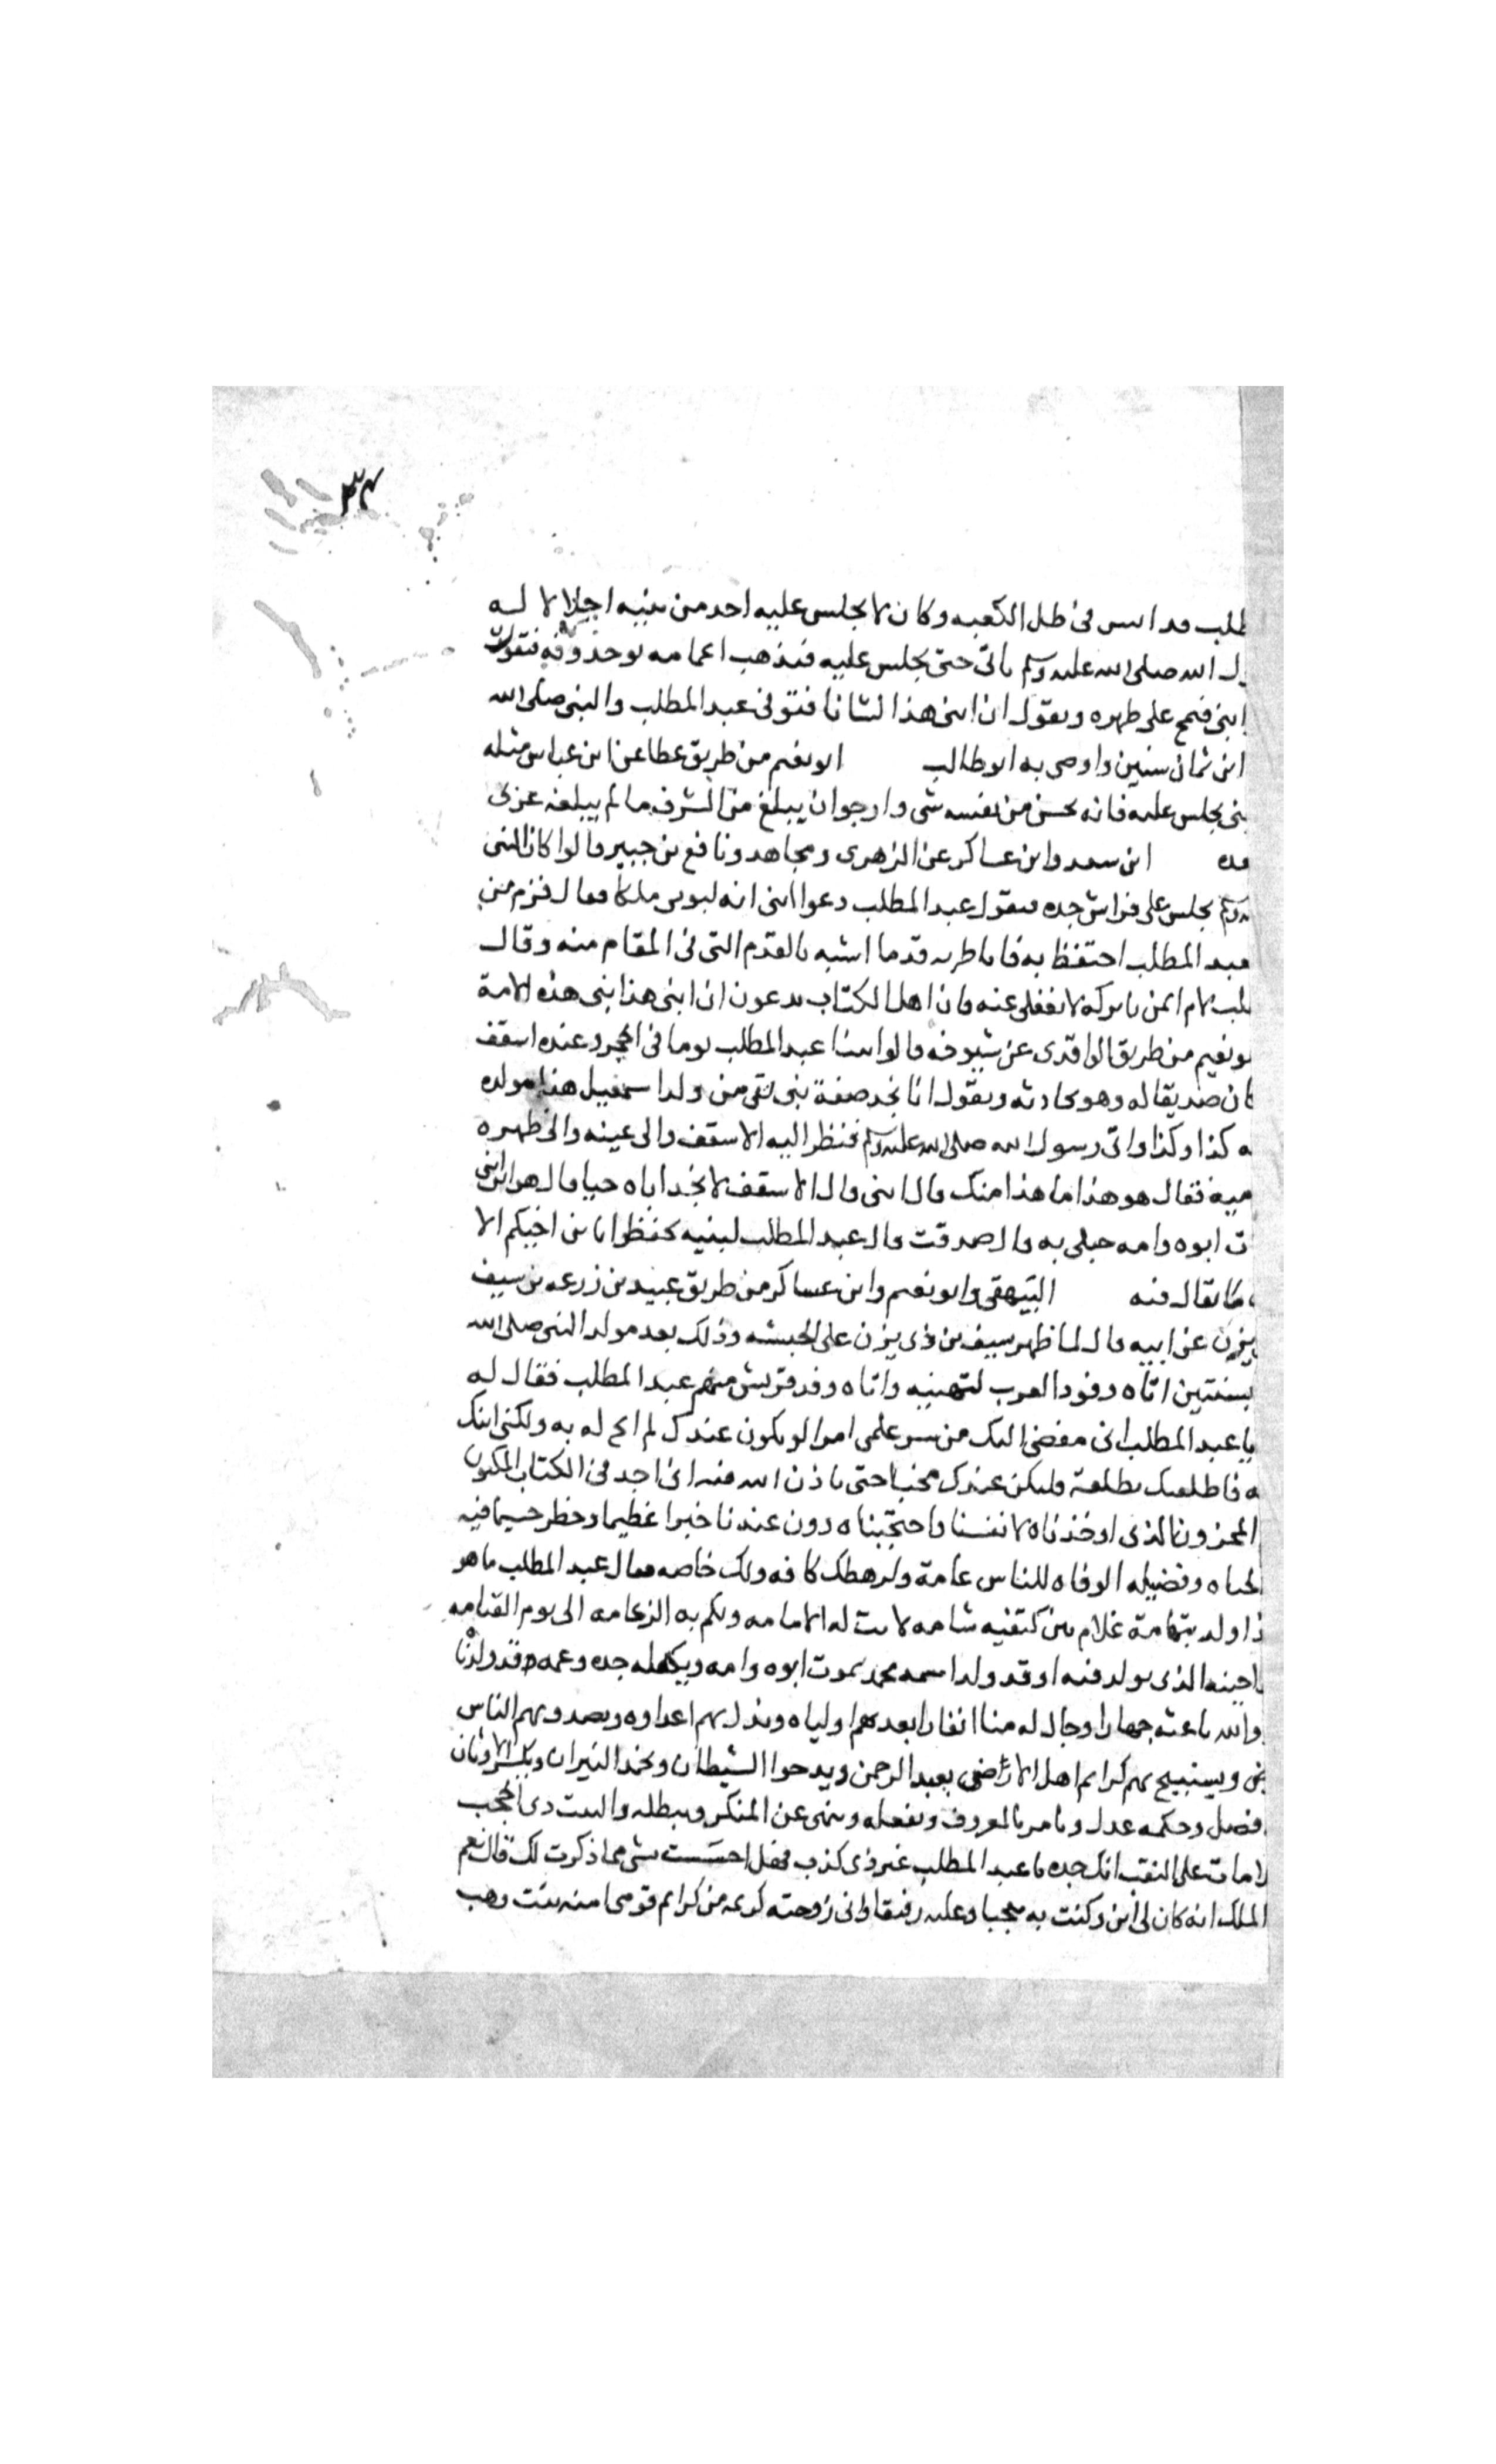 ٣٤
طلب مداسس فى ظل الكعبه وكان لا يجلس عليه احد من بنيه اجلالا له
ل الله صلى الله عليه وسلم ياتى حتى يجلس عليه فيذهب اعمامه يوخرونه فيقول
ابنى فيمسح على ظهره ويقول ان ابنى هذا لشانا فتوفى عبد المطلب والنبى صلى الله
ابن ثمان سنين واوصى به ابو طالب ابو نعيم من طريق عطا عن ابن عباس مثله
بنى يجلس عليه فانه يحس من نفسه شى وارجوا ان يبلغ من الشرف ما لم يبلغه عربى
ابن سعد وابن عساكر عن الزهرى ومجاهد ونافع بن جبير قالوا كان النبى
يجلس على فراش جده فيقول عبد المطلب دعوا ابنى انه ليونس ملكا وقال قوم من
عبد المطلب احتفظ به فانا لم نر قدما اشبه بالقدم التى فى المقام منه وقال
طلب لام ايمن يا بركه لا تغفلى عنه فان اهل الكتاب يدعون ان ابنى هذا نبى هذه الامة
بو نعيم من طريق الواقدى عن شيوخه قالوا بينا عبد المطلب يوما فى الحجر وعنده اسقف
كان صديقا له وهو يحادثه ويقول انا نجد صفة نبى بقى من ولد اسمعيل هذا مولده
ه كذا وكذا واتى رسول الله صلى الله عليه وسلم فنظر اليه الاسقف والى عينه والى ظهره
ميه فقال هو هذا ما هذا منك قال ابنى قال الاسقف لا نجد اباه حيا قال هو ابن ابنى
ت ابوه وامه حبلى به قال صدقت قال عبد المطلب لبنيه تحفظوا بابن اخيكم الا
ما يقال فيه البيهقى وابو نعيم وابن عساكر من طريق عبيد بن زرعه بن سيف
يزن عن ابيه قال لما ظهر سيف بن ذى يزن على الحبشه وذلك بعد مولد النبى صلى الله
بسنتين اتاه وفود العرب لتهنيه واتاه وفد قريش منهم عبد المطلب فقال له
يا عبد المطلب انى مفضى اليك من سر علمى امرا لو يكون عندك لم ابح له به ولكنى ابنك
ه فاطلعتك بطلعة وليكن عندك مخبا حتى ياذن الله فيه انى اجد فى الكتاب المكنون
المخزون الذى اوخذناه لانفسنا واحتجبناه دون عندنا خبرا عظيما وخطر جسيما فيه
الحياه وفضيله الوفاه للناس عامة ولرهطك كافه ولك خاصه فقال عبد المطلب ما هو
ذا ولد بتهامة غلام بين كتفيه شامه كانت له الامامه ولكم به الزعامه الى يوم القيامه
احينه الذى يولد فيه اوقد ولد اسمه محمد يموت ابوه وامه ويكفله جده وعمه وقد ولدنا
والله باعثه جهارا وجال له منا انفارا بعدهم اولياه ويذل بهم اعداوه ويصد وبهم الناس
ويستبيح بهم كرايم اهل الاراضى يعبد الرحمن ويدحوا الشيطان وتخمد النيران وتكسر الاوثان
فصل وحكمه عدل ويامر بالمعروف ويفعله وينهى عن المنكر ويبطله والبيت ذى الحجب
لامات على النقب انك جده يا عبد المطلب غير ذى كذب فهل احسست بشى مما ذكرت لك قال نعم
الملك انه كان لى ابن وكنت به معجبا وعليه رفيقا وانى زوجته كريمه من كرايم قومى امنه بنت وهب